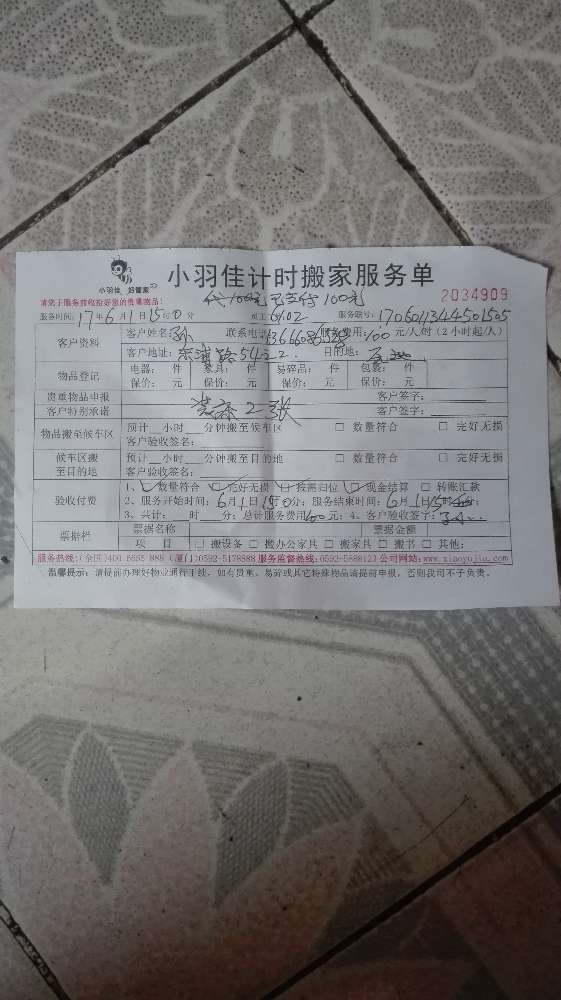 小羽佳 好管家
小羽佳计时搬家服务单
请您于服务前收拾好您的贵重物品!
已支付100元
2034909
服务时间: 17年6月1日15时0分 员工: 服务联号: 17060113444501505
客户资料
客户姓名: 孙 联系电话: 服务费用: 100 元/人/时 (2小时起/人)
客户地址: 目的地:
物品登记
电器: 件 家具: 件 易碎品: 件 包裹: 件
保价: 元 保价: 元 保价: 元 保价: 元
贵重物品申报 客户签字:
客户特别承诺 2张 客户签字:
物品搬至候车区
预计__小时__分钟搬至候车区 □ 数量符合 □ 完好无损
客户验收签名:
候车区搬至目的地
预计__小时__分钟搬至目的地 □ 数量符合 □ 完好无损
客户验收签名:
验收付费
1、☑ 数量符合 ☑ 完好无损 ☑ 按需归位 ☑ 现金结算 □ 转账汇款
2、服务开始时间: 6月1日15时0分; 服务结束时间: 6月1日15时 分;
3、共计: 时 分; 总计服务费用 100 元; 4、客户验收签字:
票据栏
票据名称 票据金额
项 目 □ 搬设备 □ 搬办公家具 □ 搬家具 □ 搬书 □ 其他:
服务热线:(全国)400 6695 888 (厦门)0592-5178888 服务监督热线:0592-5688123 公司网站:www.xiaoyujia.com
温馨提示: 请提前办理好物业通行手续, 如有贵重、易碎或其它特殊物品请提前申报, 否则我司不予负责。